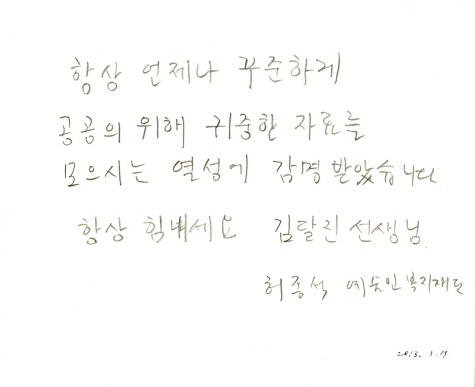 항상 언제나 꾸준하게
공공의 위해 귀중한 자료를
모으시는 열성에 감명 받았습니다
항상 힘내세요 김달진 선생님.
허종석 예술인복지재단
2013. 3. 19.